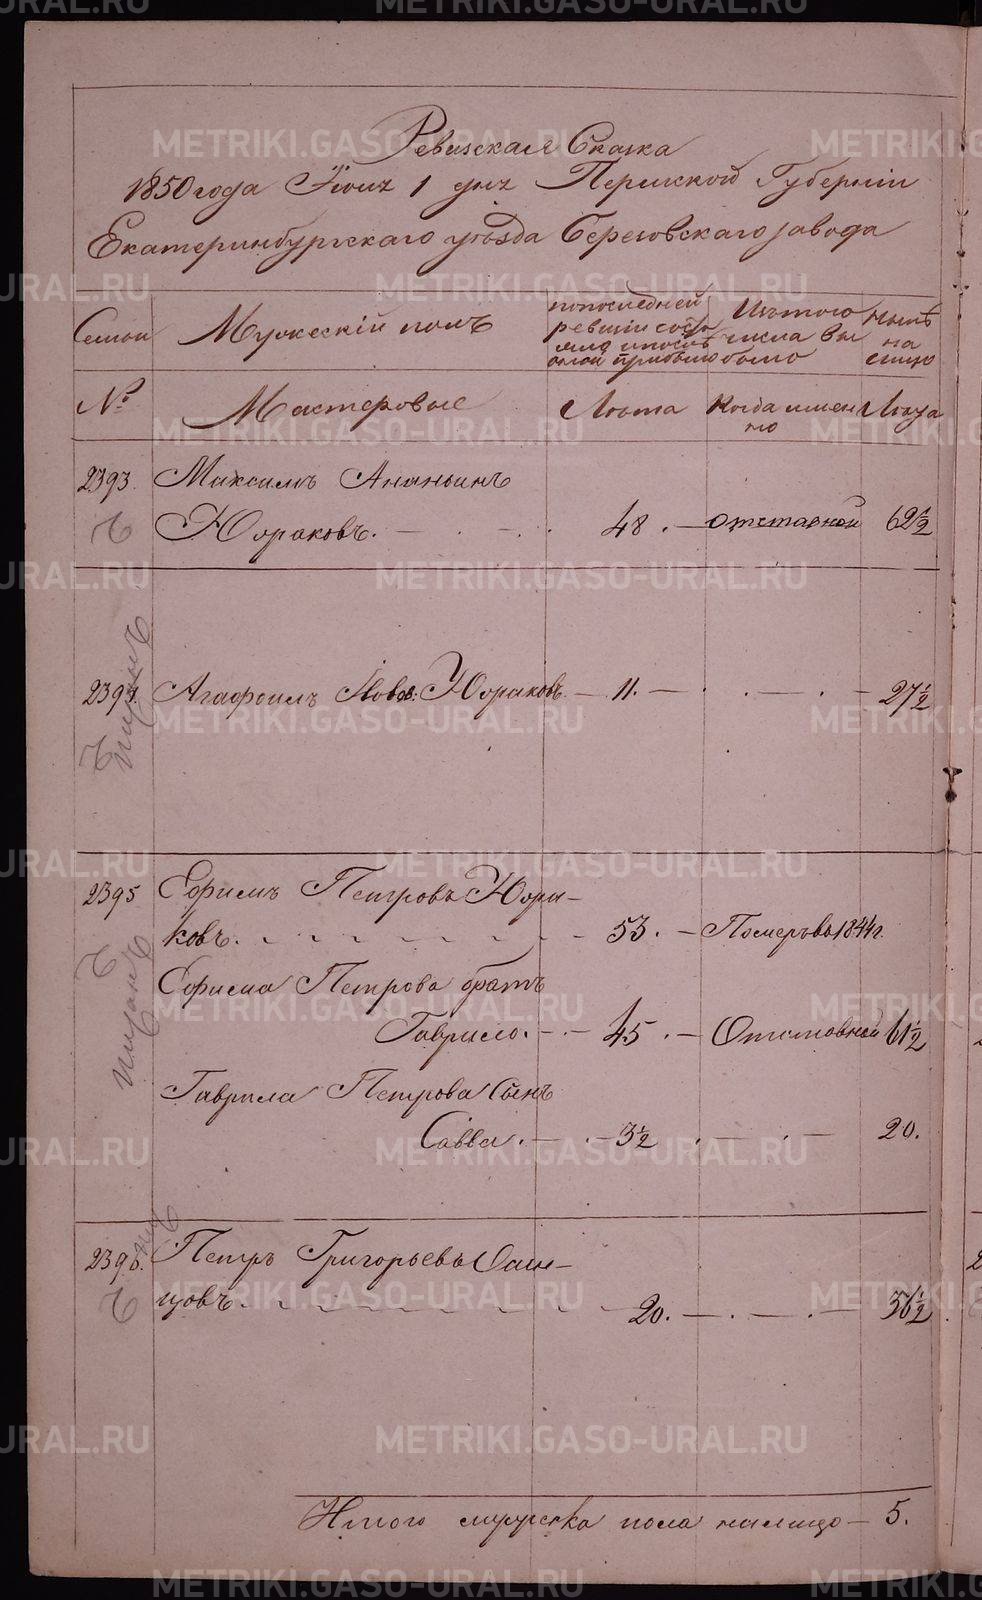 Ревизская Сказка
1850 года Іюня 1 дня Пермской Губерніи
Екатеринбургскаго уѣзда Березовскаго завода
Семьи
Мужескій полъ
по последней ревизіи состояло и после оной прибыло
Изъ того числа выбыло
Нынѣ на лицо
№
Мастеровые
Лѣта
Когда именно
Лѣта
2393
Максимъ Ананьинъ
Юдраковъ. 48. отставной 62½
2394 Агафонъ Іовов. Юдраковъ 11. 27½
2395 Ефимъ Петровъ Юдра-
ковъ. 53. Померъ въ 1844 г.
Ефима Петрова братъ
Гаврило. 45. Отставной 61½
Гаврила Петрова Сынъ
Савва. 3½ 20.
2396. Петръ Григорьевъ
цовъ. 20. 36½
Итого мужеска пола на лицо 5.
METRIKI.GASO-URAL.RU